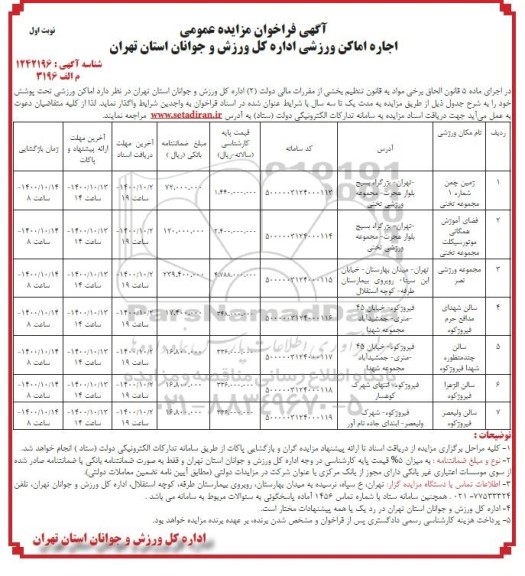 آگهی فراخوان مزایده عمومی
نوبت اول
اجاره اماکن ورزشی اداره کل ورزش و جوانان استان تهران
شناسه آگهی : ۱۲۴۲۱۹۶
م الف ۳۱۹۶
در اجرای ماده ۵ قانون الحاق برخی مواد به قانون تنظیم بخشی از مقررات مالی دولت (۲) اداره کل ورزش و جوانان استان تهران در نظر دارد اماکن ورزشی تحت پوشش
خود را به شرح جدول ذیل از طریق مزایده به مدت یک تا سه سال با شرایط عنوان شده در اسناد فراخوان به واجدین شرایط واگذار نماید. لذا از کلیه متقاضیان دعوت
به عمل می‌آید جهت دریافت اسناد مزایده به سامانه تدارکات الکترونیکی دولت (ستاد) به آدرس www.setadiran.ir مراجعه نمایند.
ردیف | نام مکان ورزشی | آدرس | کد سامانه | قیمت پایه کارشناسی (سالانه-ریال) | مبلغ ضمانتنامه بانکی (ریال) | آخرین مهلت دریافت اسناد | آخرین مهلت ارائه پیشنهاد و پاکات | زمان بازگشایی
۱ | زمین چمن شماره ۱ مجموعه تختی | تهران- بزرگراه بسیج بلوار هجرت- مجموعه ورزشی تختی | ۵۰۰۰۰۰۳۱۲۴۰۰۰۱۱۳ | ۱,۴۴۰,۰۰۰,۰۰۰ | ۷۲,۰۰۰,۰۰۰ | ۱۴۰۰/۱۰/۲- ساعت ۱۹ | ۱۴۰۰/۱۰/۱۳- ساعت ۱۴ | ۱۴۰۰/۱۰/۱۴- ساعت ۸
۲ | فضای آموزش همگانی موتورسیکلت مجموعه تختی | تهران- بزرگراه بسیج بلوار هجرت- مجموعه ورزشی تختی | ۵۰۰۰۰۰۳۱۲۴۰۰۰۱۱۴ | ۲,۴۰۰,۰۰۰,۰۰۰ | ۱۲۰,۰۰۰,۰۰۰ | ۱۴۰۰/۱۰/۲- ساعت ۱۹ | ۱۴۰۰/۱۰/۱۳- ساعت ۱۴ | ۱۴۰۰/۱۰/۱۴- ساعت ۸
۳ | مجموعه ورزشی نصر | تهران- میدان بهارستان- خیابان ابن سینا- روبروی بیمارستان طرفه- کوچه استقلال | ۵۰۰۰۰۰۳۱۲۴۰۰۰۱۱۵ | ۴,۷۸۸,۰۰۰,۰۰۰ | ۲۳۹,۴۰۰,۰۰۰ | ۱۴۰۰/۱۰/۲- ساعت ۱۹ | ۱۴۰۰/۱۰/۱۳- ساعت ۱۴ | ۱۴۰۰/۱۰/۱۴- ساعت ۸
۴ | سالن شهدای مدافع حرم فیروزکوه | فیروزکوه- خیابان ۴۵ متری- جمشیدآباد مجموعه شهدا | ۵۰۰۰۰۰۳۱۲۴۰۰۰۱۱۶ | ۳۴۸,۰۰۰,۰۰۰ | ۱۷,۴۰۰,۰۰۰ | ۱۴۰۰/۱۰/۲- ساعت ۱۹ | ۱۴۰۰/۱۰/۱۳- ساعت ۱۴ | ۱۴۰۰/۱۰/۱۴- ساعت ۸
۵ | سالن چندمنظوره شهدا فیروزکوه | فیروزکوه- خیابان ۴۵ متری- جمشیدآباد مجموعه شهدا | ۵۰۰۰۰۰۳۱۲۴۰۰۰۱۱۷ | ۳۳۶,۰۰۰,۰۰۰ | ۱۶,۸۰۰,۰۰۰ | ۱۴۰۰/۱۰/۲- ساعت ۱۹ | ۱۴۰۰/۱۰/۱۳- ساعت ۱۴ | ۱۴۰۰/۱۰/۱۴- ساعت ۸
۶ | سالن الزهرا فیروزکوه | فیروزکوه- انتهای شهرک کوهسار | ۵۰۰۰۰۰۳۱۲۴۰۰۰۱۱۸ | ۳۳۶,۰۰۰,۰۰۰ | ۱۶,۸۰۰,۰۰۰ | ۱۴۰۰/۱۰/۲- ساعت ۱۹ | ۱۴۰۰/۱۰/۱۳- ساعت ۱۴ | ۱۴۰۰/۱۰/۱۴- ساعت ۸
۷ | سالن ولیعصر فیروزکوه | فیروزکوه- شهرک ولیعصر- ابتدای جاده نام آور | ۵۰۰۰۰۰۳۱۲۴۰۰۰۱۱۹ | ۳۳۶,۰۰۰,۰۰۰ | ۱۶,۸۰۰,۰۰۰ | ۱۴۰۰/۱۰/۲- ساعت ۱۹ | ۱۴۰۰/۱۰/۱۳- ساعت ۱۴ | ۱۴۰۰/۱۰/۱۴- ساعت ۸
توضیحات :
۱- کلیه مراحل برگزاری مزایده از دریافت اسناد تا ارائه پیشنهاد مزایده گران و بازگشایی پاکات از طریق سامانه تدارکات الکترونیکی دولت (ستاد) انجام خواهد شد.
۲- نوع و مبلغ ضمانتنامه : به میزان ۵% قیمت پایه کارشناسی در وجه اداره کل ورزش و جوانان استان تهران و فقط به صورت ضمانتنامه بانکی یا ضمانتنامه صادر شده
از سوی موسسات اعتباری غیر بانکی دارای مجوز از بانک مرکزی با عنوان شرکت در مزایدات دولتی (مطابق آیین نامه تضمین معاملات دولتی)
۳- اطلاعات تماس با دستگاه مزایده گزار: تهران، خ سپاه، نرسیده به میدان بهارستان، روبروی بیمارستان طرفه، کوچه استقلال، اداره کل ورزش و جوانان تهران، تلفن
۷۷۵۳۳۳۲۴-۰۲۱ . همچنین سامانه ستاد با شماره تماس ۱۴۵۶ آماده پاسخگوئی به سئوالات مربوط به سامانه می باشد .
۴- اداره کل ورزش و جوانان استان تهران در رد یک یا همه پیشنهادات مختار است.
۵- پرداخت هزینه کارشناسی رسمی دادگستری پس از فراخوان و مشخص شدن برنده، بر عهده برنده مزایده خواهد بود.
اداره کل ورزش و جوانان استان تهران